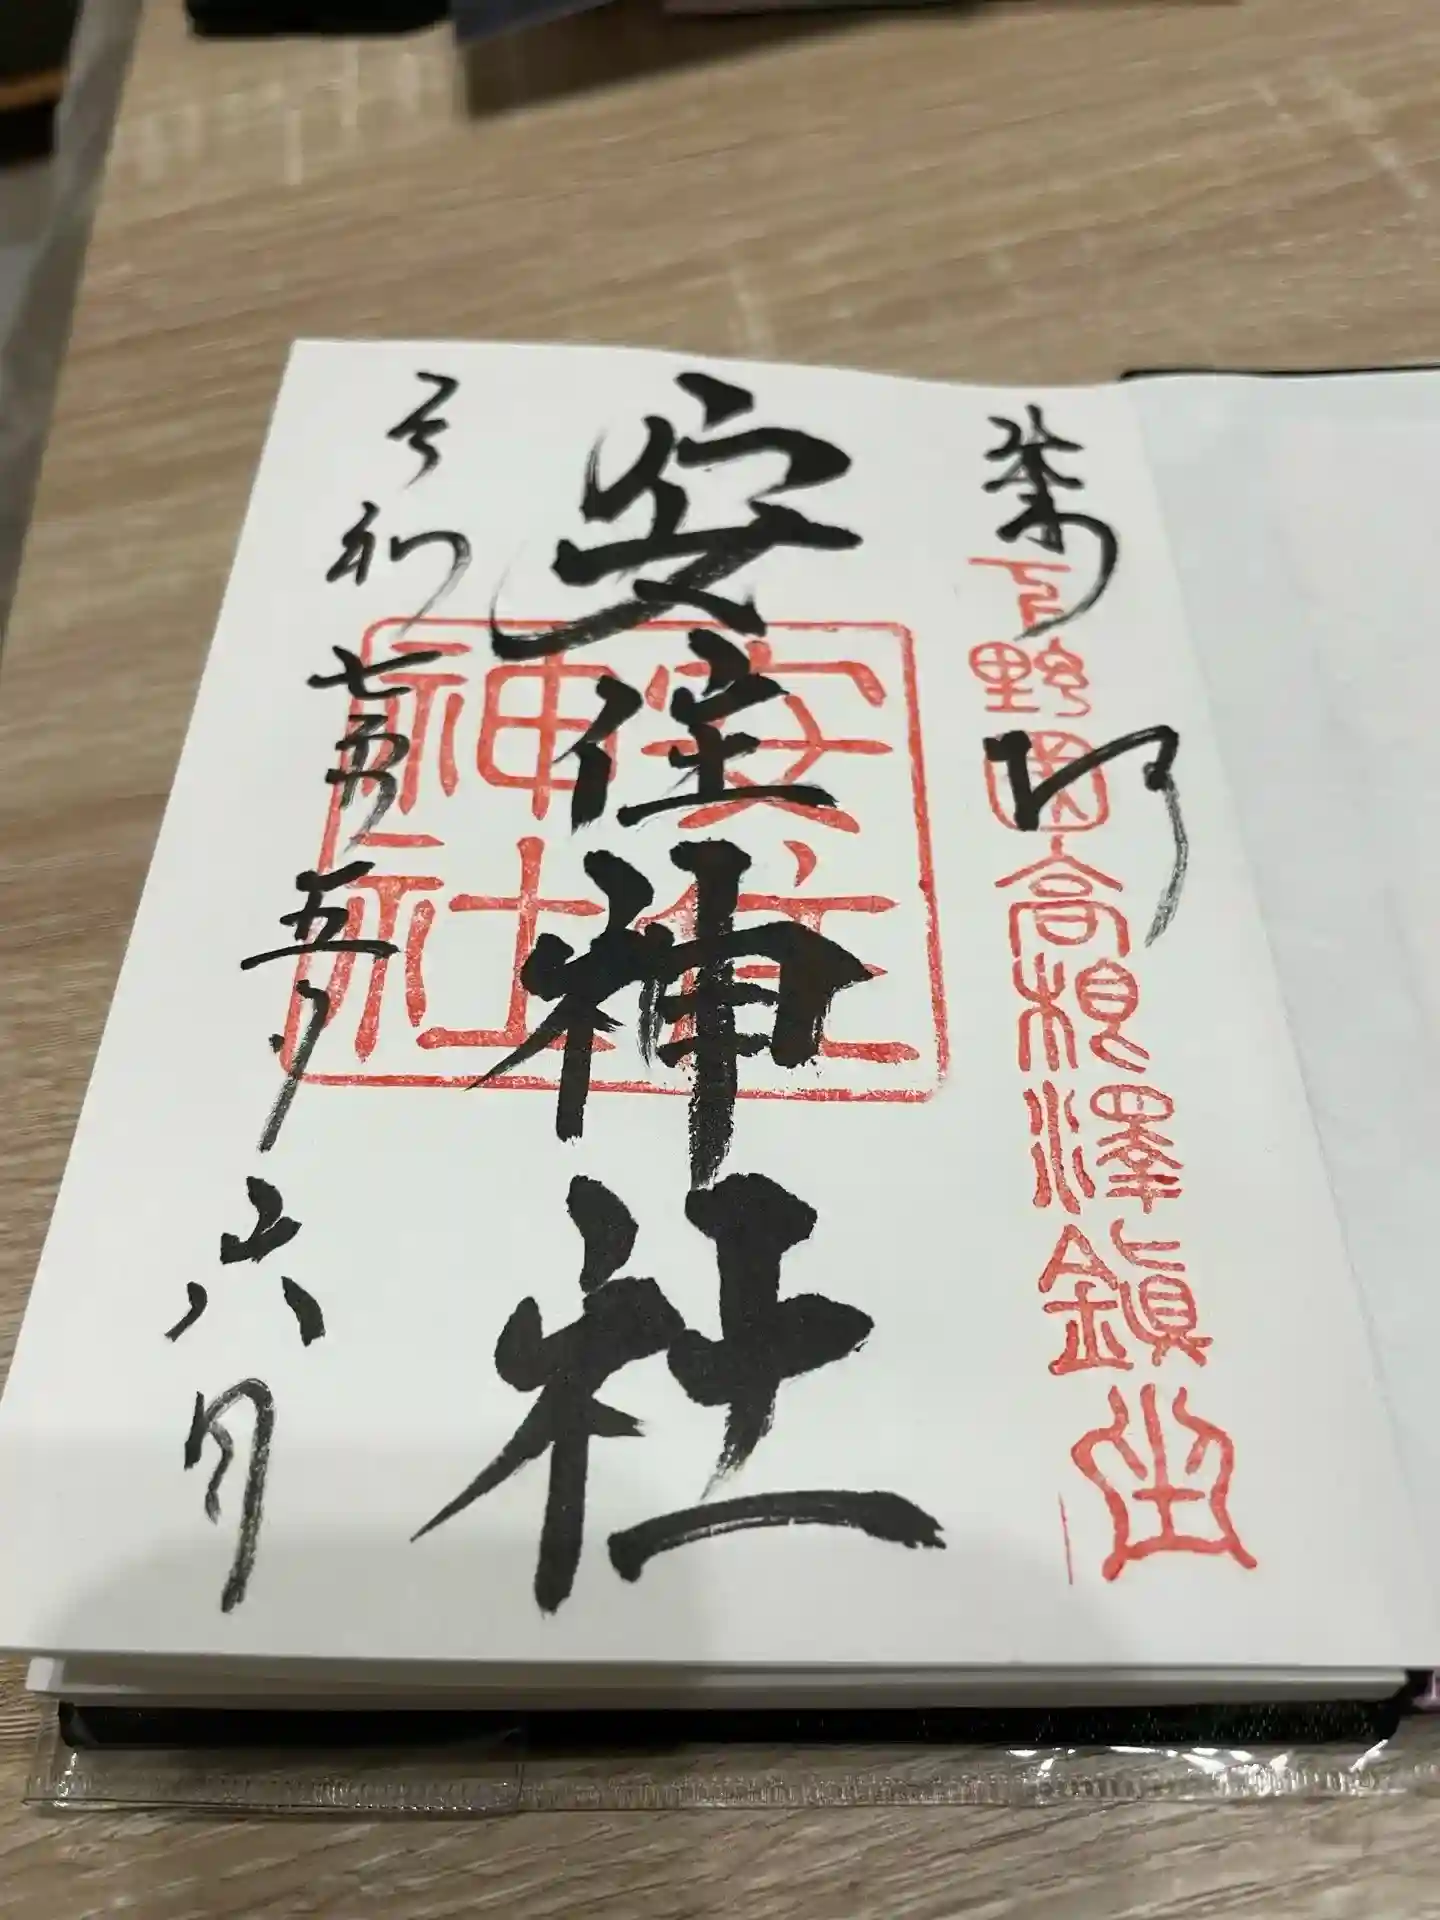 奉拝
下野國高根澤鎮座
安住神社
安住
神社
令和七年五月六日